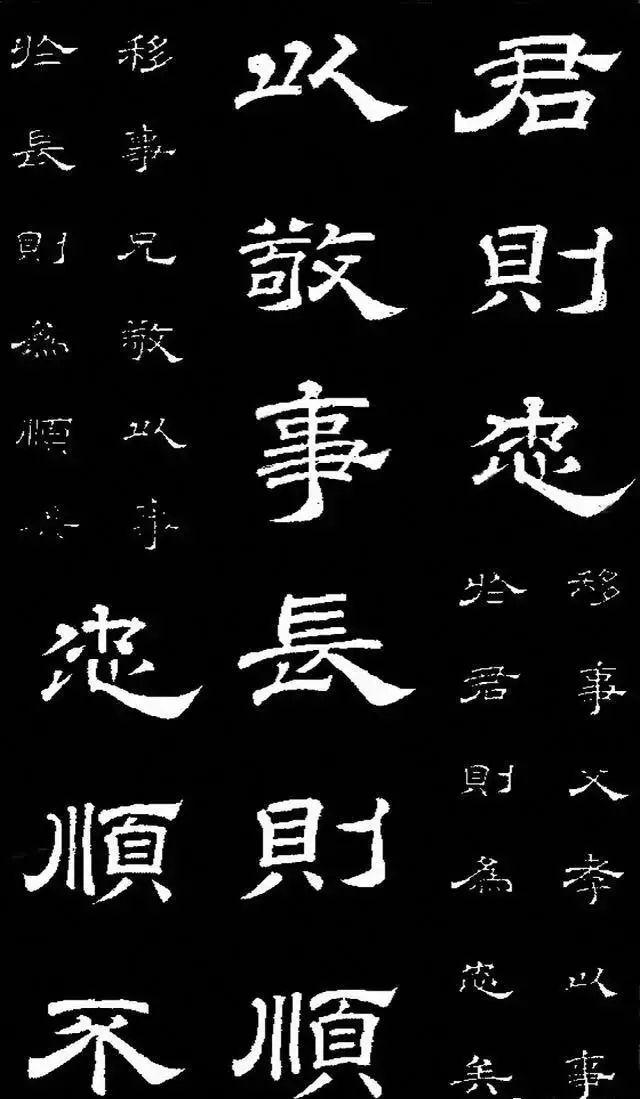 君則忠
移事父孝以事
於君則為忠矣
以敬事長則順
移事兄敬以事
於長則為順矣
忠順不